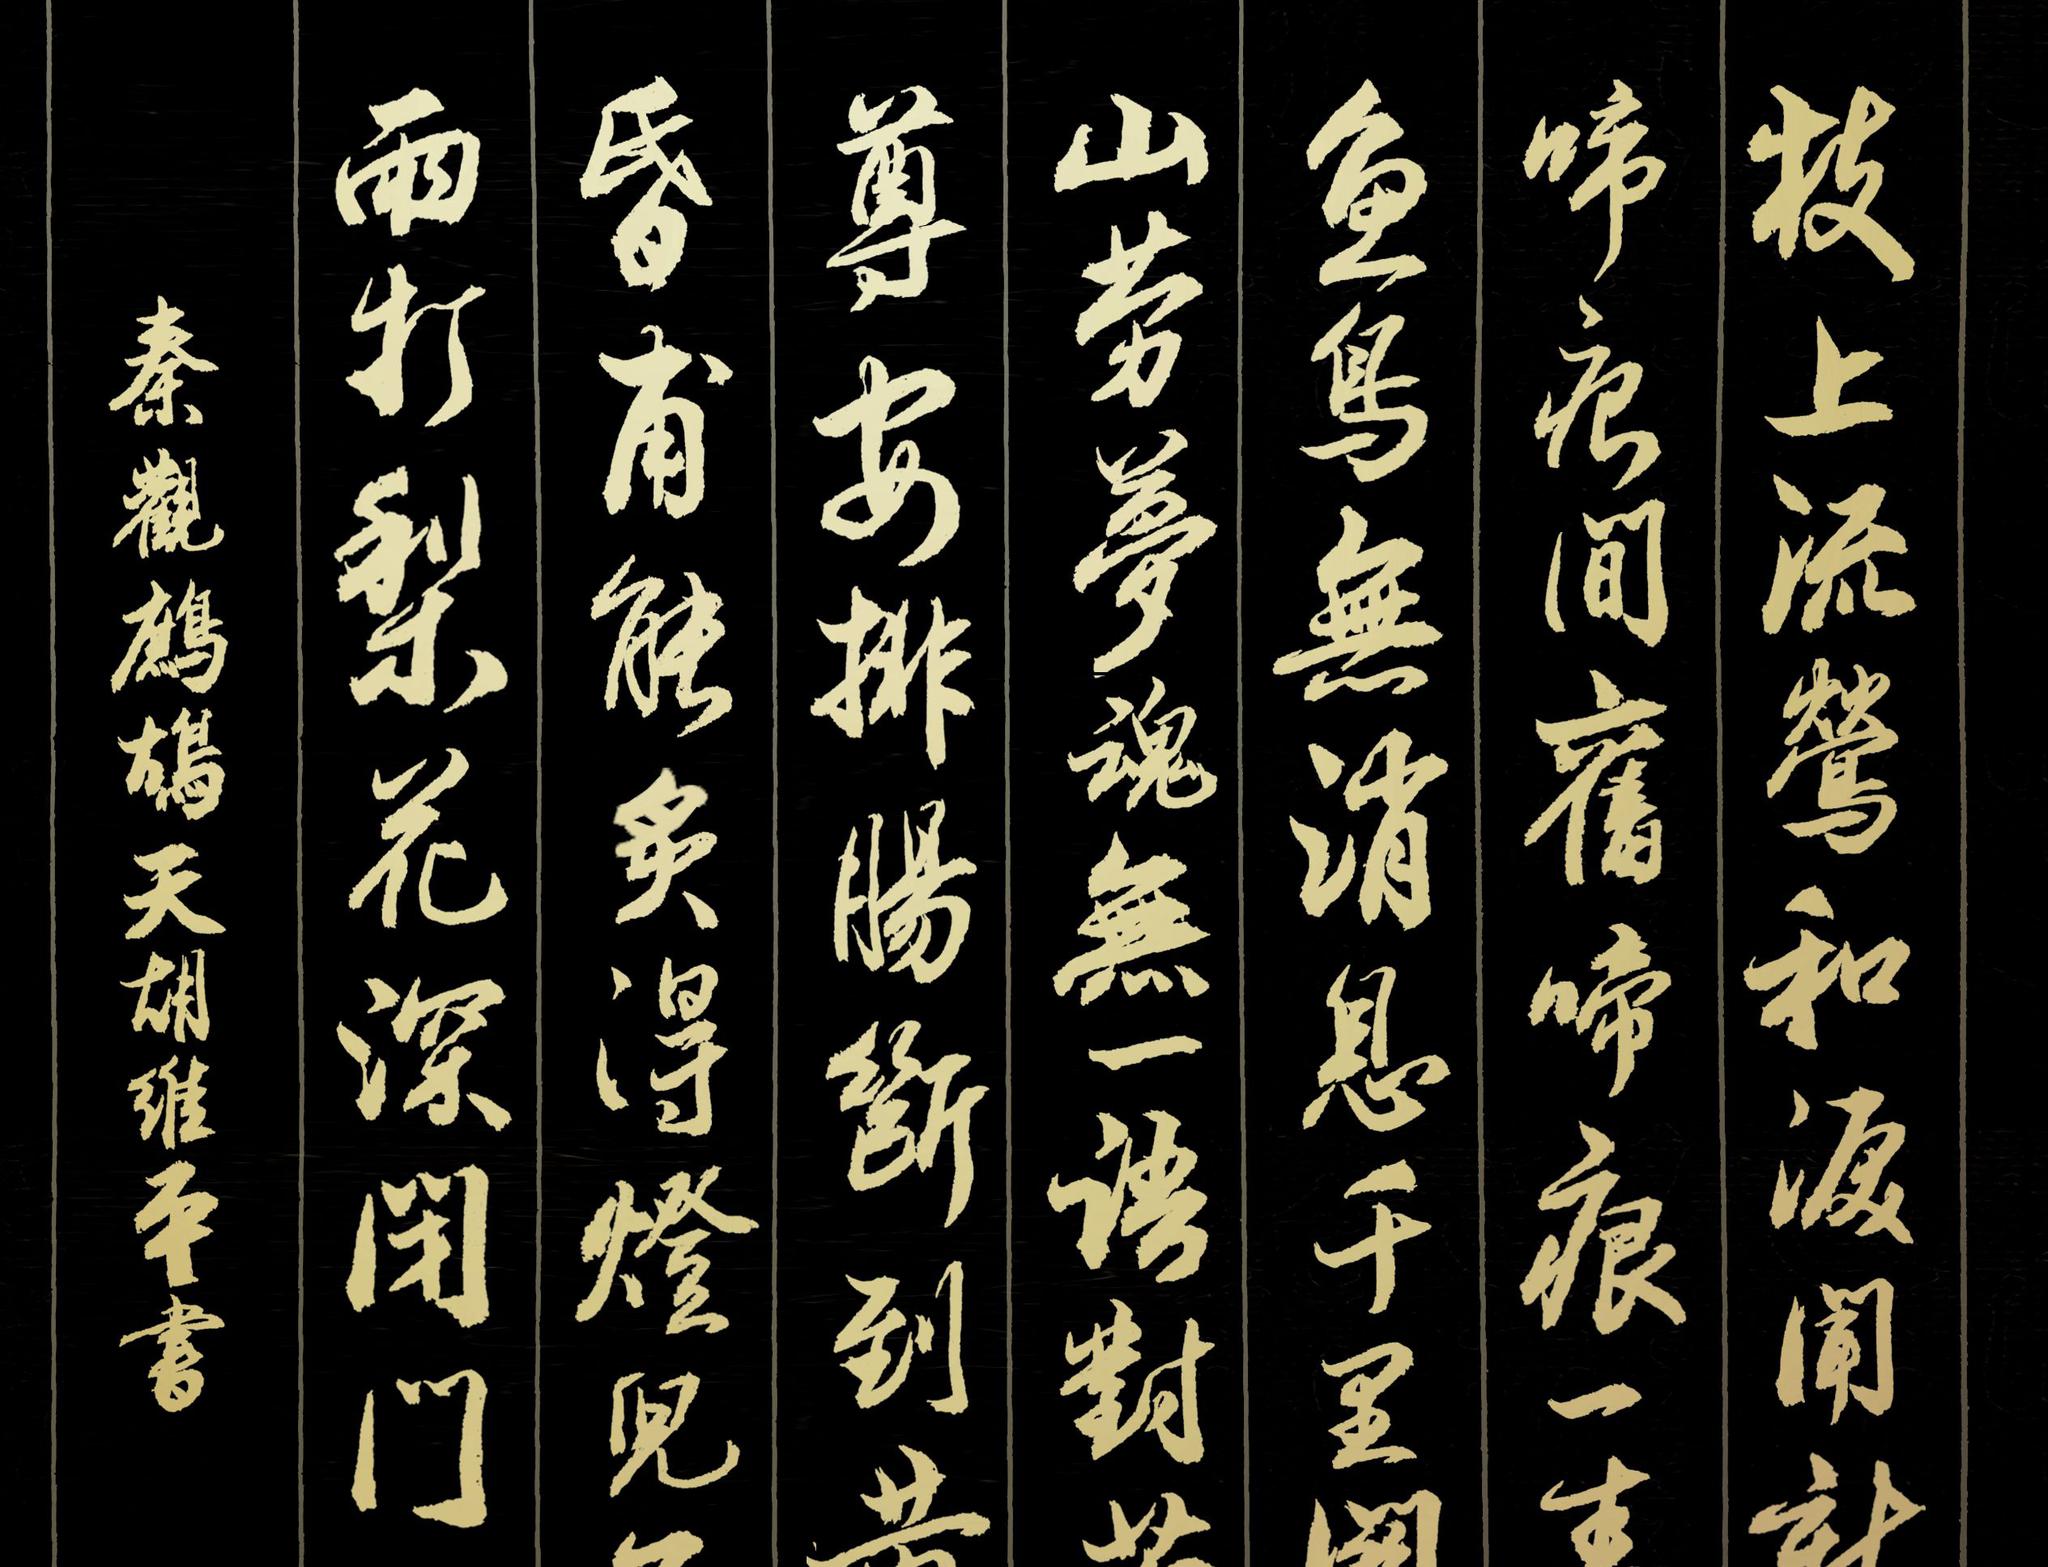 枝上流鶯和淚聞新
啼痕間舊啼痕一春
魚鳥無消息千里關
山勞夢魂無一語對芳
尊安排腸斷到黃
昏甫能炙得燈兒了
雨打梨花深閉門
秦觀鷓鴣天胡維平書